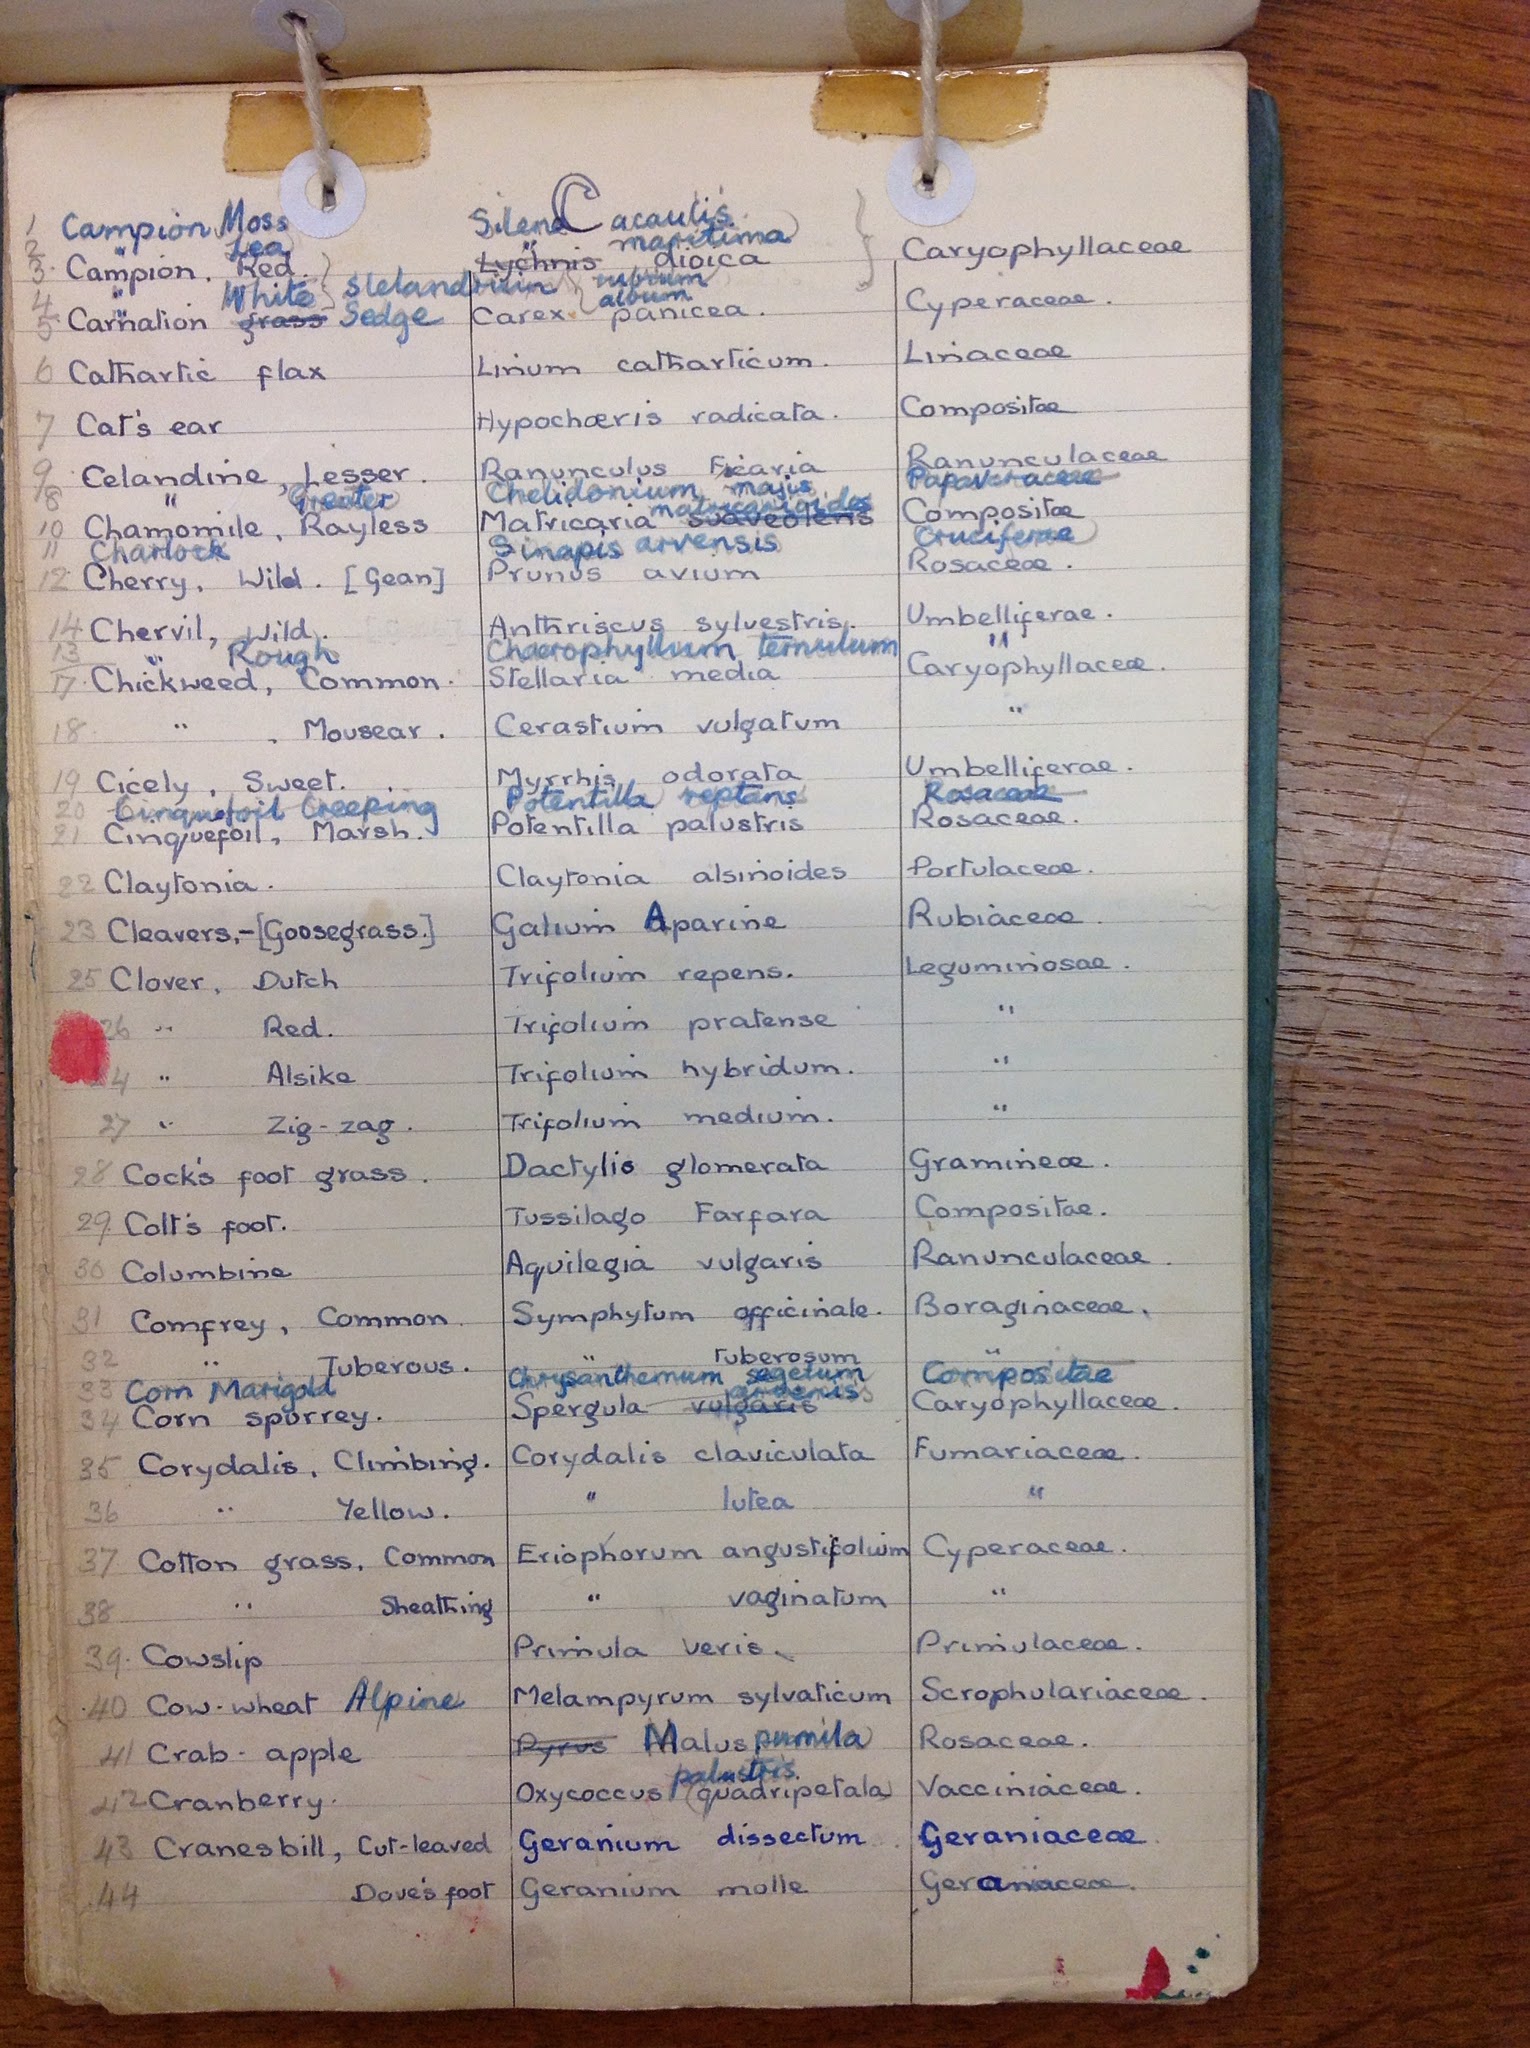 C
1 Campion Moss Silene acaulis
2 " Sea " maritima
3. Campion. Red. Lychnis dioica Caryophyllaceae
4 " White rubrum album
5 Carnation grass Sedge Carex panicea. Cyperaceae.
6 Cathartic flax Linum catharticum. Linaceae
7 Cat's ear Hypochæris radicata. Compositae
9 Celandine, Lesser. Ranunculus Ficaria Ranunculaceae
8 " Greater Chelidonium majis Papaveraceae
10 Chamomile, Rayless Matricaria suaveolens matricarioides Compositae
11 Charlock Sinapis arvensis Cruciferae
12 Cherry, Wild. [Gean] Prunus avium Rosaceae.
14 Chervil, Wild. Anthriscus sylvestris. Umbelliferae.
13 " Rough Chaerophyllum temulum "
17. Chickweed, Common. Stellaria media Caryophyllaceae.
18 " , Mousear. Cerastium vulgatum "
19 Cicely, Sweet. Myrrhis odorata Umbelliferae.
20 Cinquefoil Creeping Potentilla reptans Rosaceae
21 Cinquefoil, Marsh. Potentilla palustris Rosaceae.
22 Claytonia. Claytonia alsinoides Portulaceae.
23 Cleavers,-[Goosegrass.] Galium Aparine Rubiaceae.
25 Clover, Dutch Trifolium repens. Leguminosae.
26 " Red. Trifolium pratense "
24 " Alsike Trifolium hybridum. "
27 " Zig-zag. Trifolium medium. "
28 Cock's foot grass. Dactylis glomerata Gramineae.
29. Colt's foot. Tussilago Farfara Compositae.
30 Columbine Aquilegia vulgaris Ranunculaceae.
31 Comfrey, Common. Symphytum officinale. Boraginaceae.
32 " Tuberous. " Tuberosum "
33 Corn Marigold Chrysanthemum segetum Compositae
34 Corn spurrey. Spergula vulgaris arvensis Caryophyllaceae.
35 Corydalis, Climbing. Corydalis claviculata Fumariaceae.
36 " Yellow. " lutea "
37 Cotton grass, Common Eriophorum angustifolium Cyperaceae.
38 " Sheathing " vaginatum "
39. Cowslip Primula veris. Primulaceae.
40 Cow-wheat Alpine Melampyrum sylvaticum Scrophulariaceae.
41 Crab-apple Pyrus Malus pumila Rosaceae.
42 Cranberry. Oxycoccus palustris. (quadripetala) Vacciniaceae.
43 Cranesbill, Cut-leaved Geranium dissectum. Geraniaceae
44 Dove's foot Geranium molle Geraniaceae.